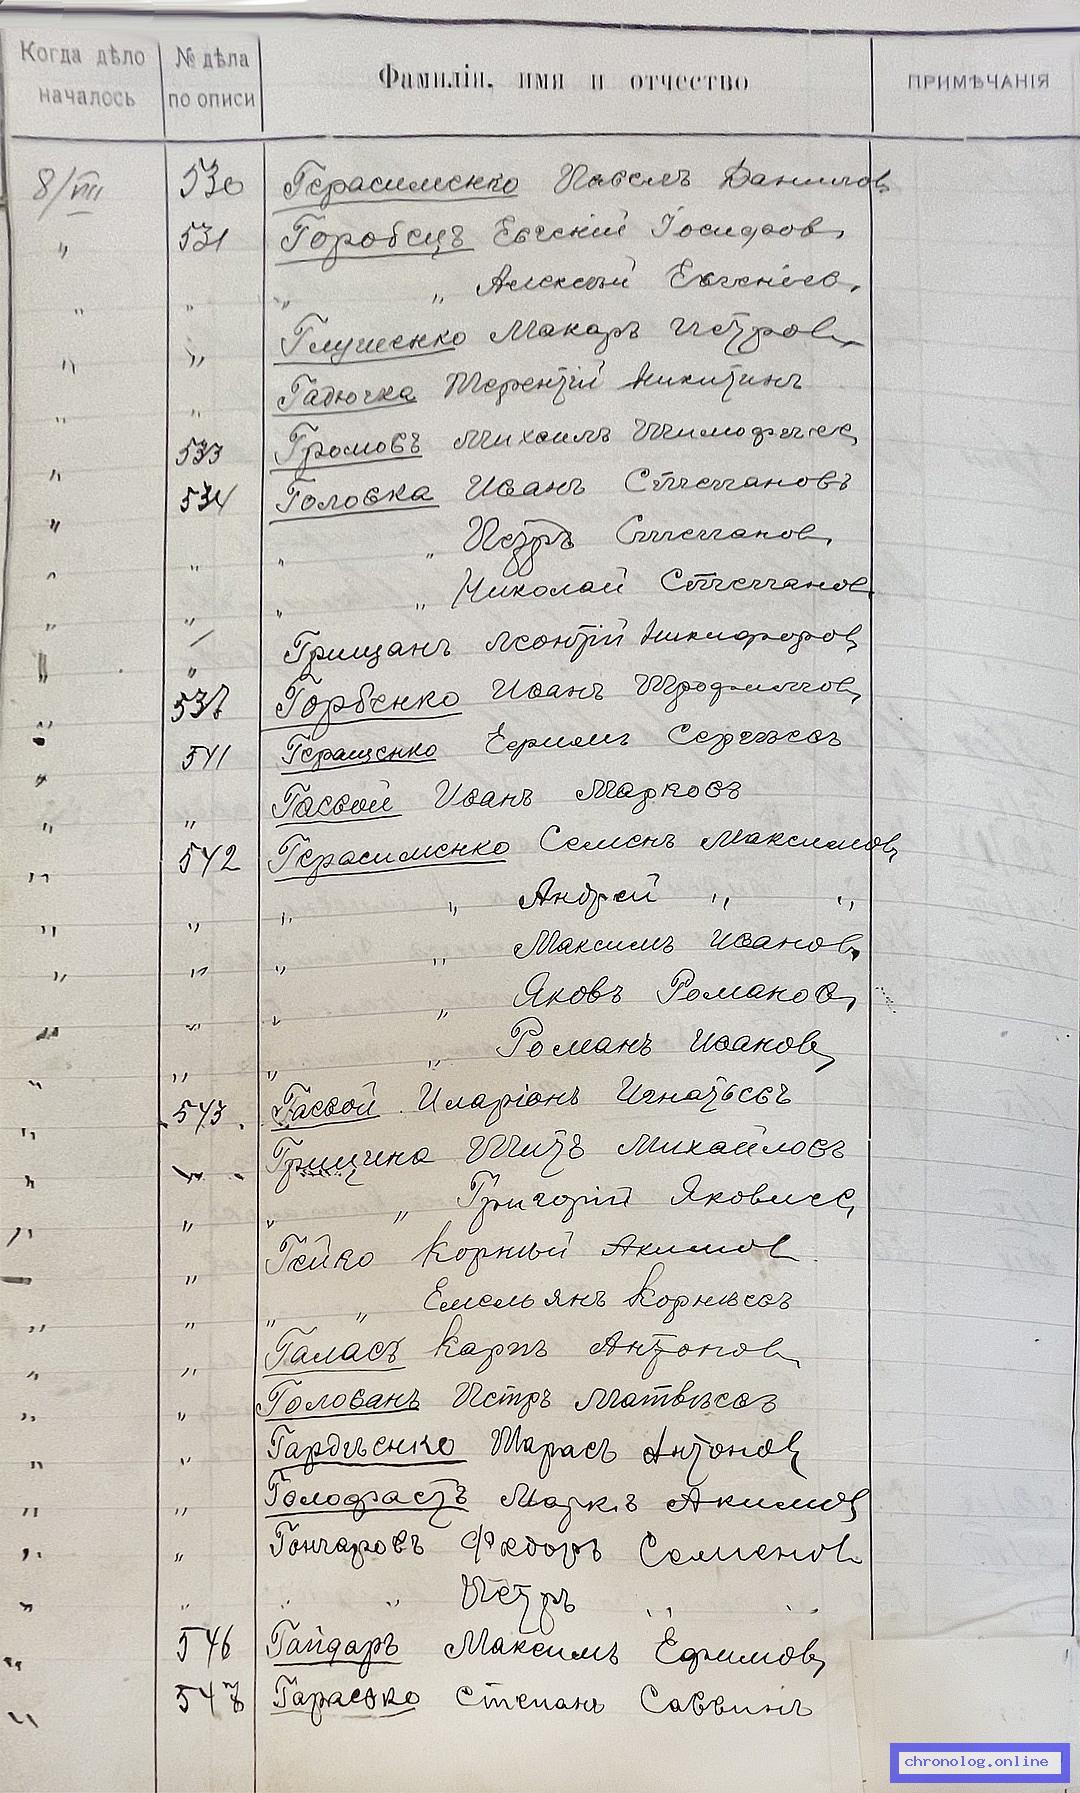 Когда дѣло началось № дѣла по описи Фамилія, имя и отчество ПРИМѢЧАНІЯ
8/VII 530 Герасименко Павелъ Данилов
„ 531 Горобецъ Евгеній Іосифов
„ „ „ „ Алексѣй Евгеніев
„ „ Глущенко Макаръ Петров
„ „ Гадючка Терентій Никитинъ
„ 533 Громовъ Михаилъ Тимофеев
„ 534 Головка Иванъ Степановъ
„ „ „ „ Петръ Степанов
„ „ „ „ Николай Степанов
„ „ Грищанъ Леонтій Никифоров
„ 537 Горбенко Иванъ Трофимов
„ 541 Геращенко Сергѣевъ
„ „ Гасвой Иванъ Марковъ
„ 542 Герасименко Семенъ Максимов
„ „ „ „ Андрей „ „
„ „ „ „ Максимъ Иванов
„ „ „ „ Яковъ Романов
„ „ „ „ Романъ Иванов
„ 543 Гасвой Иларіонъ Игнатьевъ
„ „ Грицина Титъ Михайловъ
„ „ „ „ Григорій Яковлев
„ „ Гейко Корнѣй Акимов
„ „ „ „ Емельянъ Корнѣевъ
„ „ Галасъ Карпъ Антонов
„ „ Голованъ Петръ Матвѣевъ
„ „ Гардіенко Тарасъ Антонов
„ „ Голофастъ Маркъ Акимов
„ „ Гончаровъ Федоръ Семенов
„ „ „ „ Петръ „ „
„ 546 Гайдаръ Максимъ Ефимов
„ 547 Гарасько Степанъ Саввинъ
chronolog.online